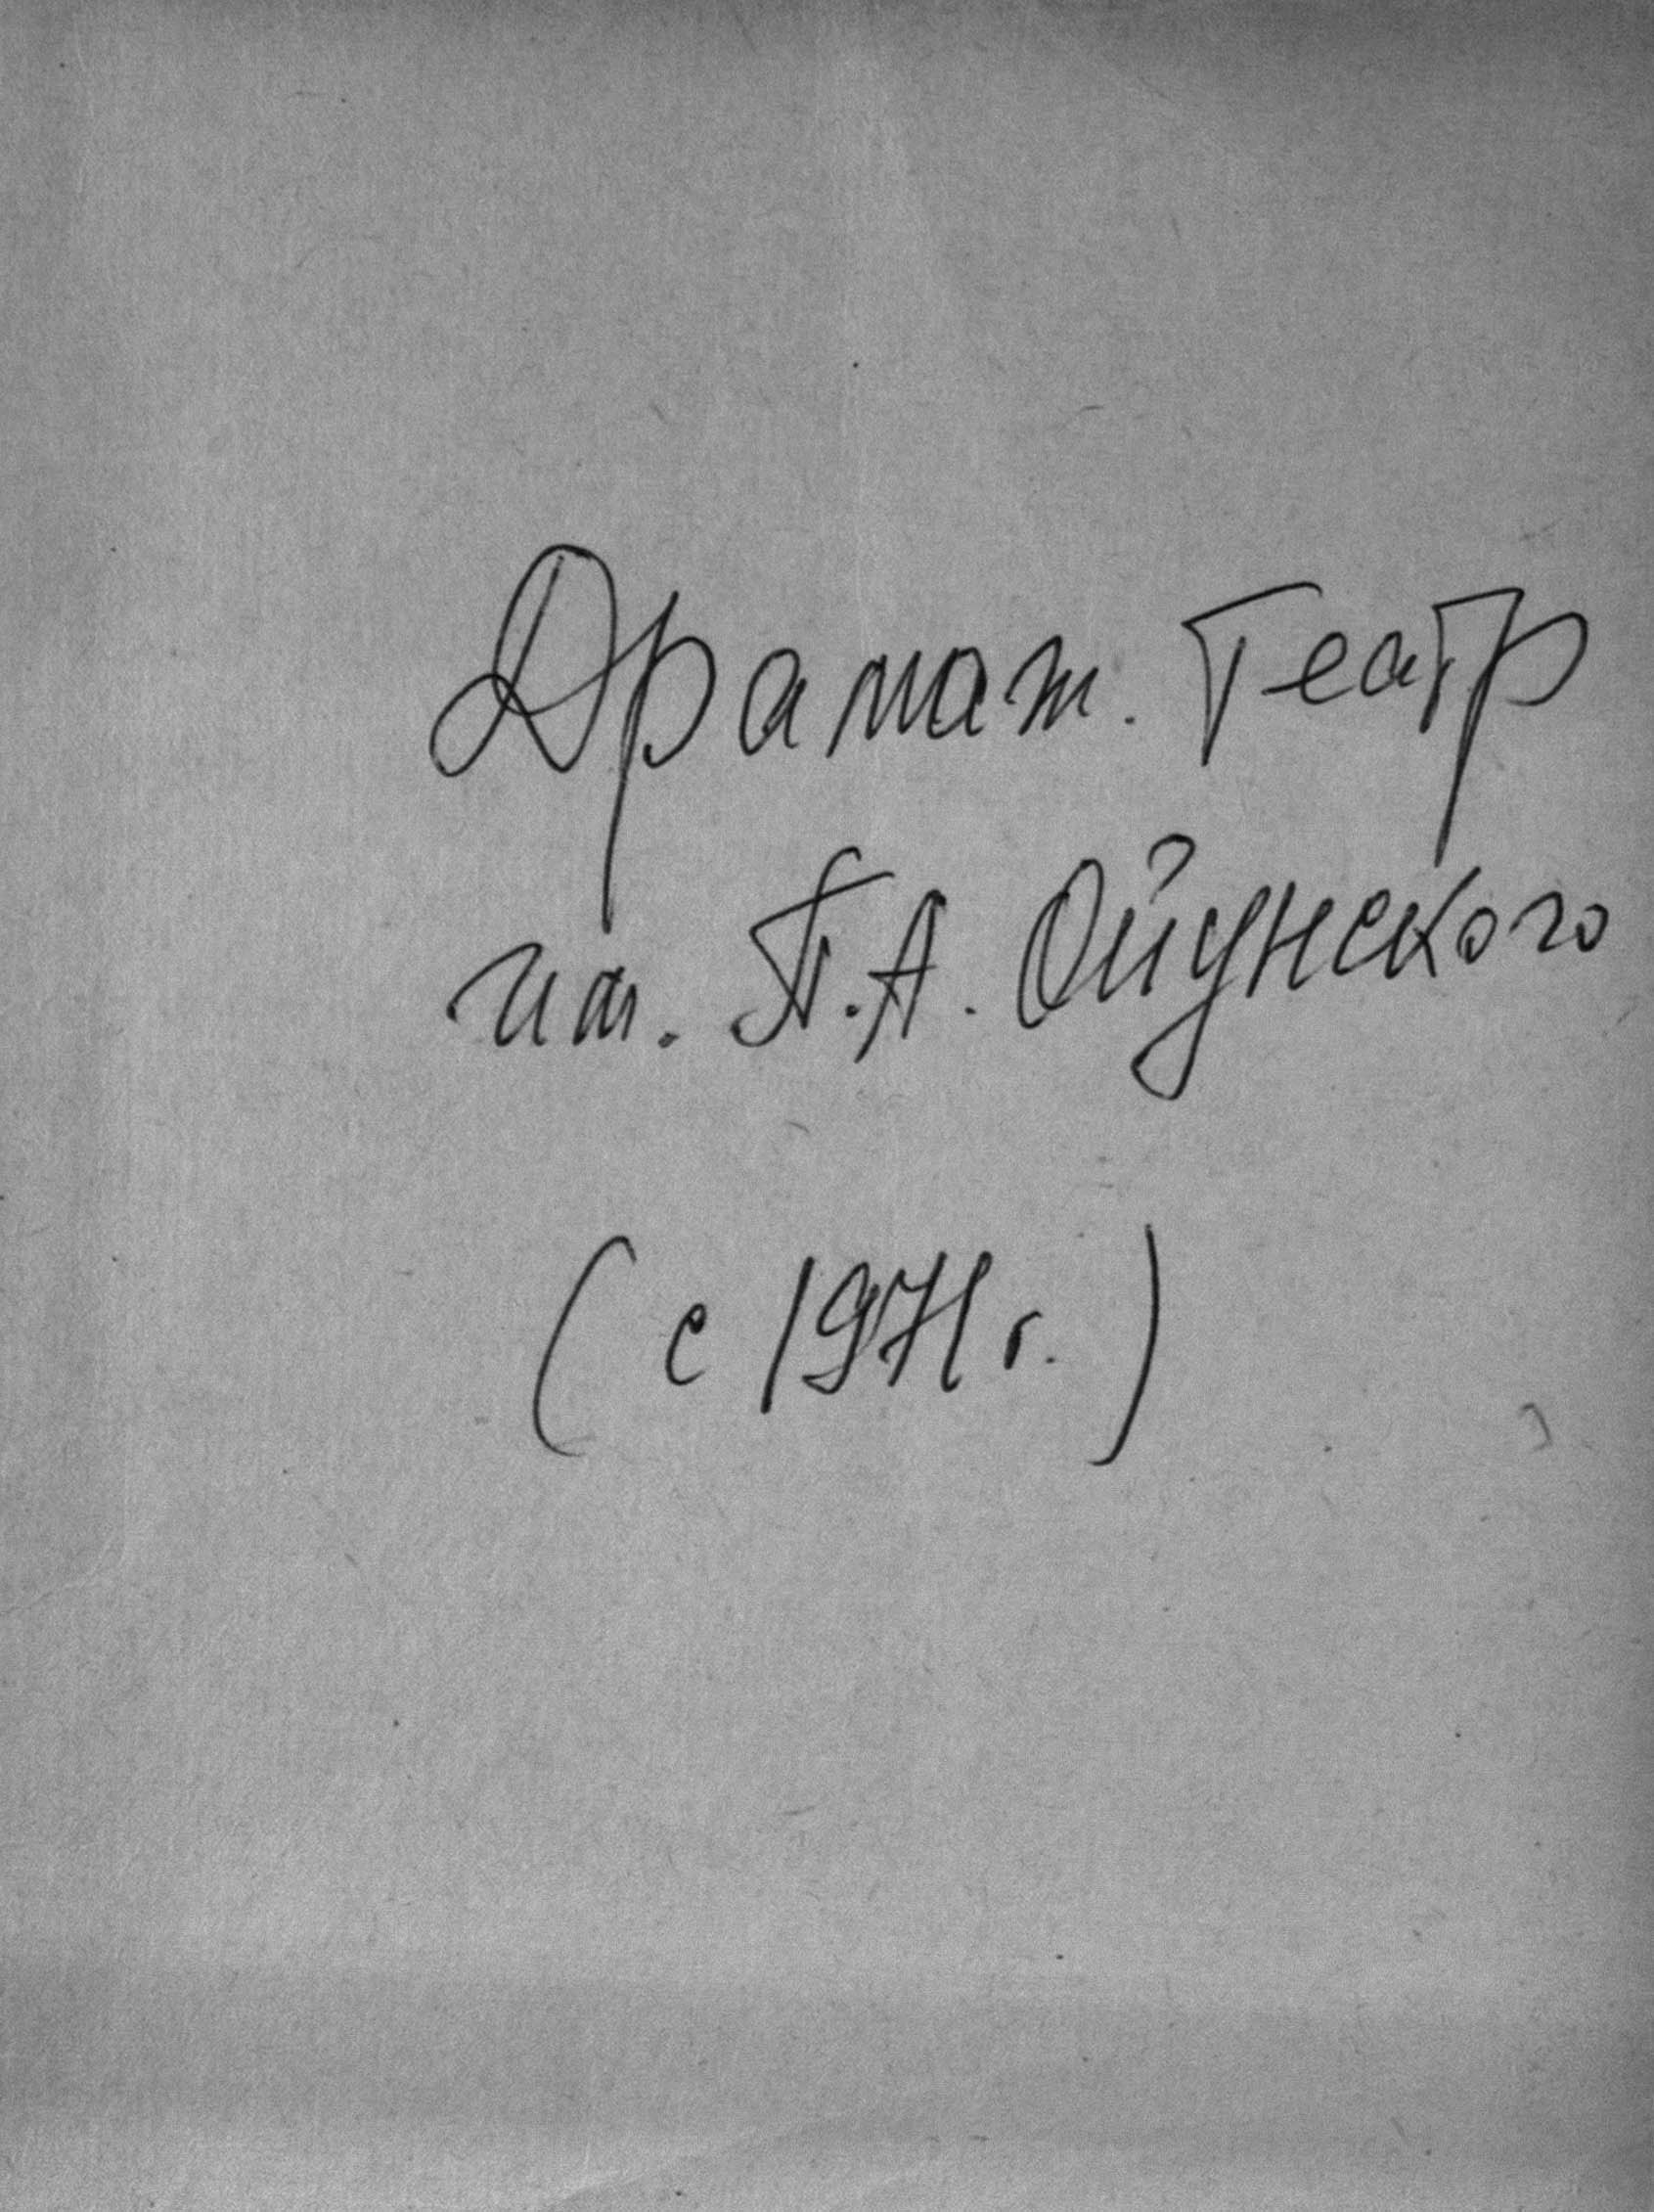 Драмат. Театр
им. П.А. Ойунского
(с 1971 г.)